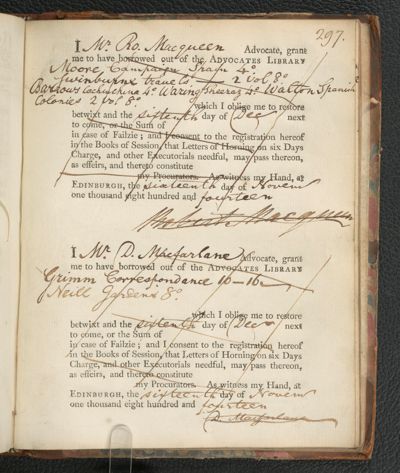 297.
I Mr. Ro. Macqueen Advocate, grant
me to have borrowed out of the ADVOCATES LIBRARY
Moore, Campaign Spain 4o.
Swinburne travels — 2 Vol 8o.
Barrows Cochinchina 4o. Waring Sheeraz 4o. Walton Spanish
Colonies 2 vol 8o.
which I oblige me to restore
betwixt and the sixteenth day of (Decr) next
to come, or the Sum of
in case of Failzie ; and I consent to the registration hereof
in the Books of Session, that Letters of Horning on six Days
Charge, and other Executorials needful, may pass thereon,
as effeirs, and thereto constitute
my Procurators. As witness my Hand, at
EDINBURGH, the sixteenth day of Novem
one thousand eight hundred and fourteen
Robert Macqueen
I Mr. D. Macfarlane Advocate, grant
me to have borrowed out of the ADVOCATES LIBRARY
Grimm Correspondance 10-16
Neill Gardens 8o.
which I oblige me to restore
betwixt and the sixteenth day of (Decr) next
to come, or the Sum of
in case of Failzie ; and I consent to the registration hereof
in the Books of Session, that Letters of Horning on six Days
Charge, and other Executorials needful, may pass thereon,
as effeirs, and thereto constitute
my Procurators. As witness my Hand, at
EDINBURGH, the sixteenth day of Novem
one thousand eight hundred and fourteen
D. Macfarlane